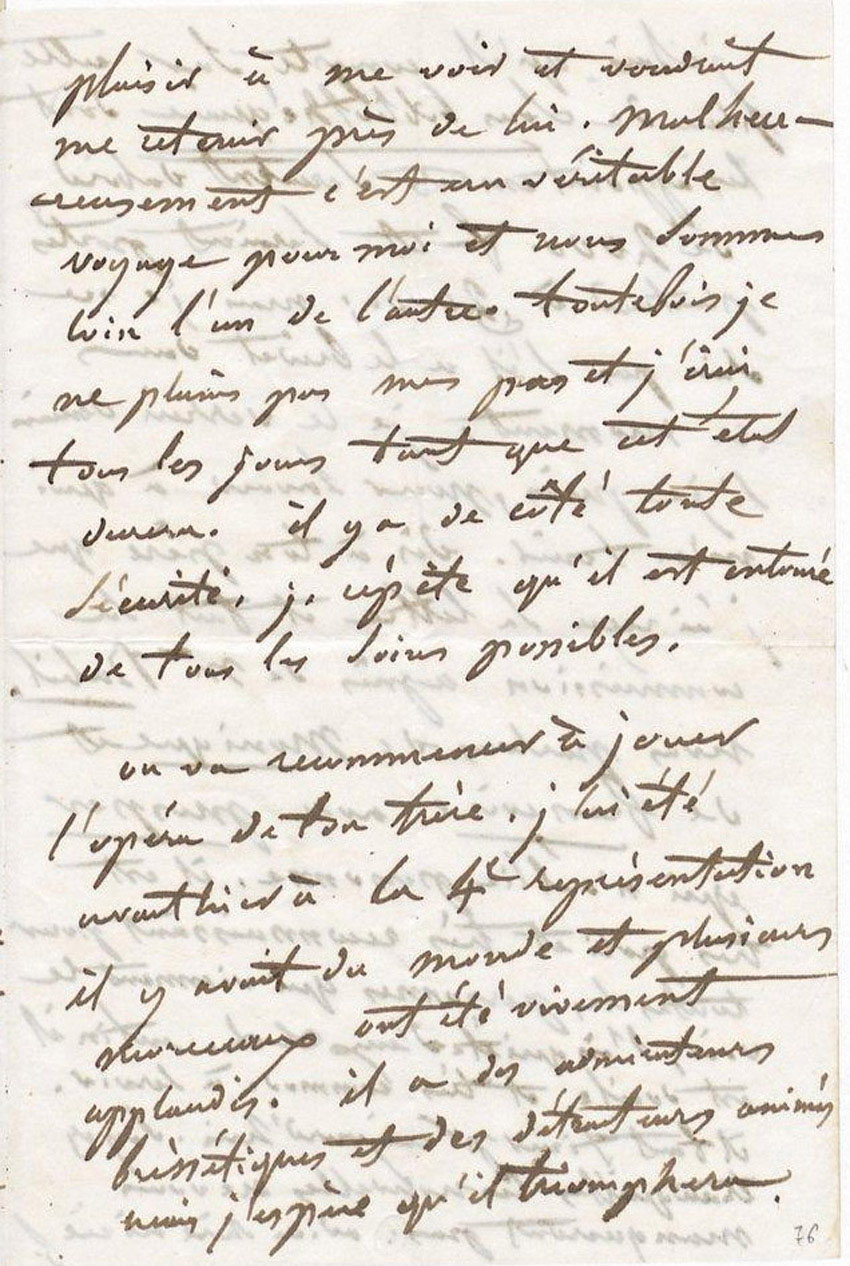 plaisir à me voir et voudrait
me retenir près de lui. Malheu-
reusement c'est un véritable
voyage pour moi et nous sommes
loin l'un de l'autre. toutefois je
ne plains pas mes pas et j'irai
tous les jours tant que cet état
durera. il y a de côté toute
sécurité. je répète qu'il est entouré
de tous les soins possibles.
on va recommencer à jouer
l'opéra de ton frère. j'ai été
avanthier à la 4e représentation
il y avait du monde et plusieurs
morceaux ont été vivement
applaudis. il a des admirateurs
et des détracteurs animés
mais j'espère qu'il triomphera.
76